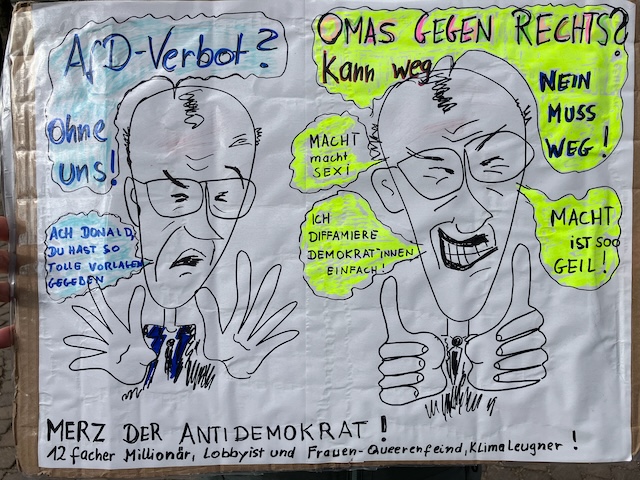 AfD-Verbot?
Ohne
uns!
ACH DONALD,
DU HAST SO
TOLLE VORLAGEN
GEGEBEN
OMAS GEGEN RECHTS?
Kann weg
NEIN
MUSS
WEG!
MACHT
macht
SEXI
ICH
DIFFAMIERE
DEMOKRAT*INNEN
EINFACH!
MACHT
ist soo
GEIL!
MERZ DER ANTIDEMOKRAT!
12 facher Millionär, Lobbyist und Frauen-Queerenfeind, Klimaleugner!